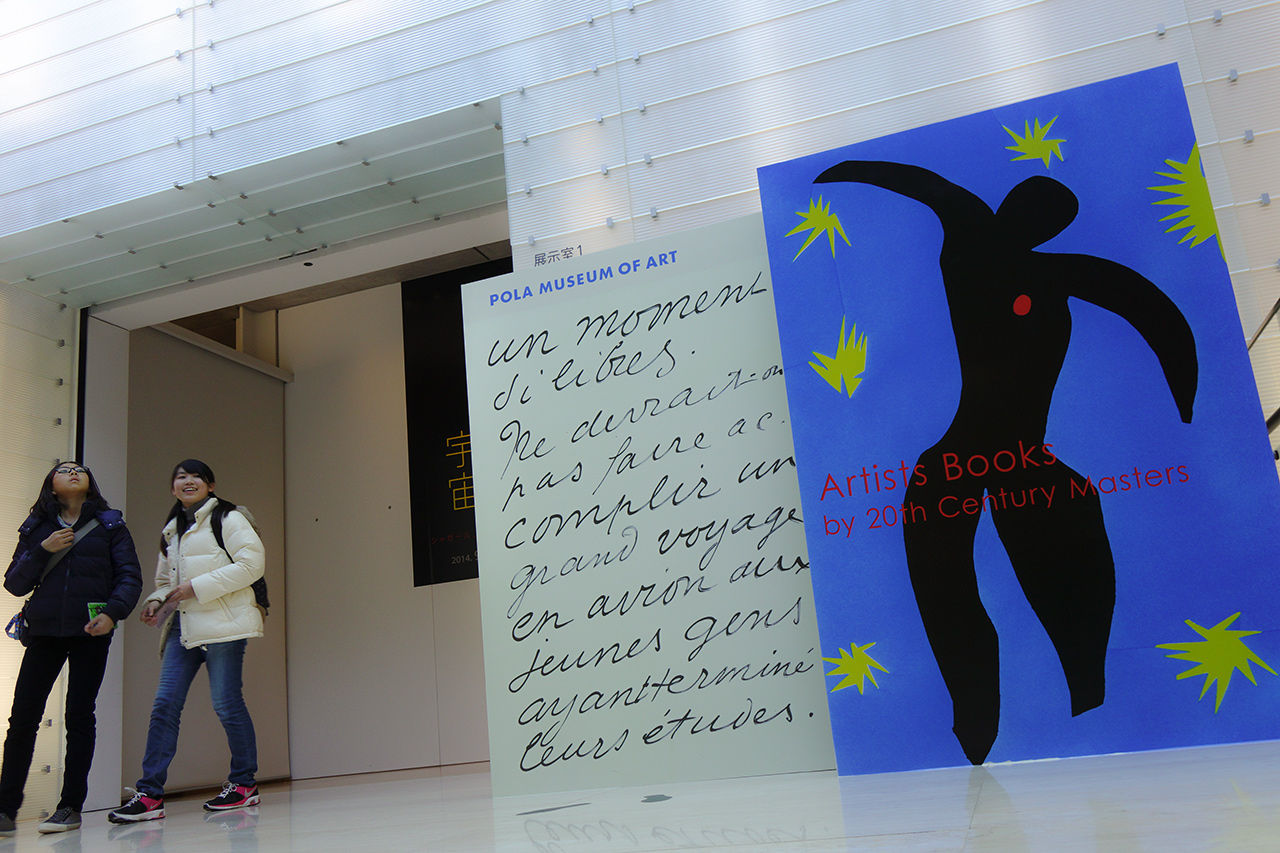 展示室1
POLA MUSEUM OF ART
un moment
di libres.
Ne devrait-on
pas faire ac-
complir un
grand voyage
en avion aux
jeunes gens
ayant terminé
leurs études.
Artists Books
by 20th Century Masters
宇
宙
2014.